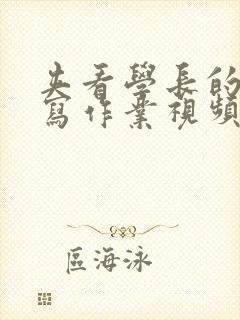 夫看學長的
寫作業視頻
區海泳